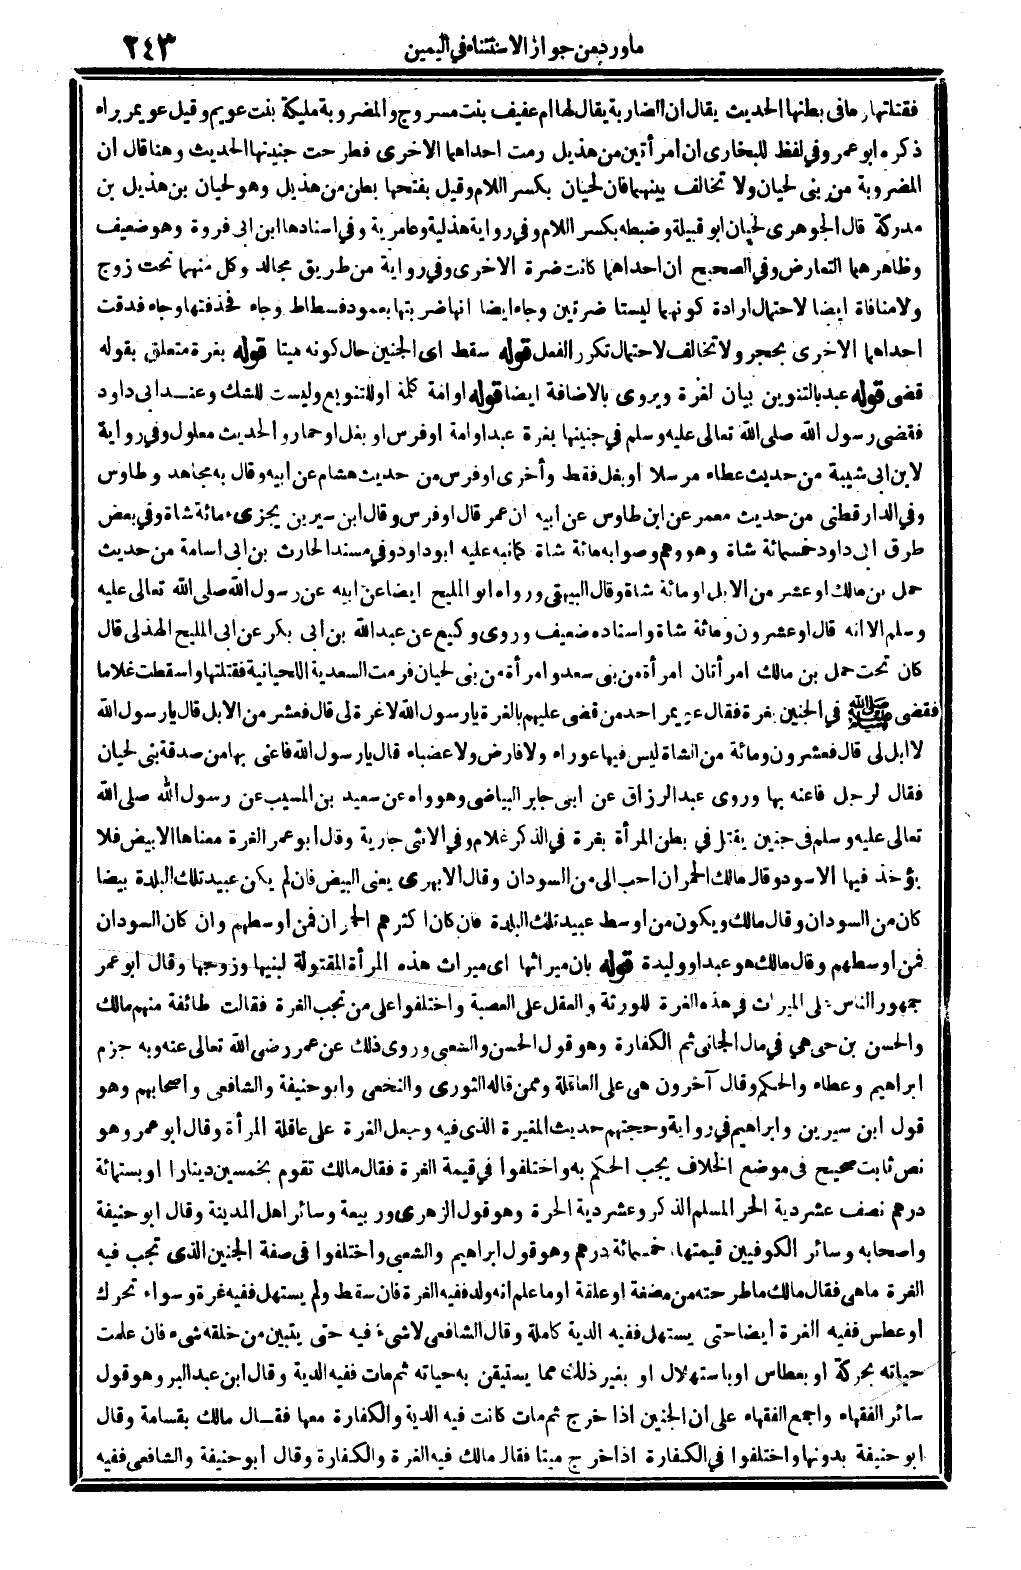 ماورد من جواز الاستثناء في اليمين ٢٤٣
فقتلتها وما في بطنها الحديث يقال ان الضاربة يقال لها ام عفيف بنت مسروج والمضروبة مليكة بنت عويم وقيل عويمر براء
ذكره ابو عمر وفي لفظ للبخارى ان امرأتين من هذيل رمت احداهما الاخرى فطرحت جنينها الحديث وهنا قال ان
المضروبة من بنى لحيان ولا تخالف بينهما فان لحيان بكسر اللام وقيل بفتحها بطن من هذيل وهو لحيان بن هذيل بن
مدركة قال الجوهرى لحيان ابو قبيلة وضبطه بكسر اللام وفي رواية هذلية وعامرية وفي اسنادها ابن ابى فروة وهو ضعيف
وظاهرهما التعارض وفي الصحيح ان احداهما كانت ضرة الاخرى وفي رواية من طريق مجالد وكل منهما تحت زوج
ولا منافاة ايضا لاحتمال ارادة كونهما ليستا ضرتين وجاء ايضا انها ضربتها بعمود فسطاط وجاء فحذفتها وجاء فدقت
احداهما الاخرى بحجر ولا تخالف لاحتمال تكرر الفعل قوله سقط اى الجنين حال كونه ميتا قوله بغرة متعلق بقوله
قضى قوله عبد بالتنوين بيان لغرة ويروى بالاضافة ايضا قوله او امة كلمة او للتنويع وليست للشك وعند ابى داود
فقضى رسول الله صلى الله تعالى عليه وسلم في جنينها بغرة عبد او امة او فرس او بغل او حمار والحديث معلول وفي رواية
لابن ابى شيبة من حديث عطاء مرسلا او بغل فقط وأخرى او فرس من حديث هشام عن ابيه وقال به مجاهد وطاوس
وفي الدارقطنى من حديث معمر عن ابن طاوس عن ابيه ان عمر قال او فرس وقال ابن سيرين يجزىء مائة شاة وفي بعض
طرق ابى داود خمسمائة شاة وهو وهم وصوابه مائة شاة كمانبه عليه ابو داود وفي مسند الحارث بن ابى اسامة من حديث
حمل بن مالك او عشر من الابل او مائة شاة وقال البيهقى ورواه ابو المليح ايضا عن ابيه عن رسول الله صلى الله تعالى عليه
وسلم الا انه قال او عشرون ومائة شاة واسناده ضعيف وروى وكيع عن عبد الله بن ابى بكر عن ابى المليح الهذلى قال
كان تحت حمل بن مالك امرأتان امرأة من بنى سعد وامرأة من بنى لحيان فرمت السعدية اللحيانية فقتلتها واسقطت غلاما
فقضى ﷺ في الجنين بغرة فقال عويمر احد من قضى عليهم بالغرة يا رسول الله لا غرة لى قال فعشر من الابل قال يا رسول الله
لا ابل لى قال فعشرون ومائة من الشاة ليس فيها عوراء ولا فارض ولا عضباء قال يا رسول الله فاعنى بها من صدقة بنى لحيان
فقال لرجل فاعنه بها وروى عبد الرزاق عن ابى جابر البياضى وهو واه عن سعيد بن المسيب عن رسول الله صلى الله
تعالى عليه وسلم في جنين يقتل في بطن المرأة بغرة في الذكر غلام وفي الانثى جارية وقال ابو عمر الغرة معناها الابيض فلا
يؤخذ فيها الاسود وقال مالك الحمران احب الى من السودان وقال الابهرى يعنى البيض فان لم يكن عبيد تلك البلدة بيضا
كان من السودان وقال مالك ويكون من اوسط عبيد تلك البلدة فان كان اكثرهم الحمران فمن اوسطهم وان كان السودان
فمن اوسطهم وقال مالك هو عبد او وليدة قوله بان ميراثها اى ميراث هذه المرأة المقتولة لبنيها وزوجها وقال ابو عمر
جمهور الناس على الميراث في هذه الغرة للورثة والعقل على العصبة واختلفوا على من تجب الغرة فقالت طائفة منهم مالك
والحسن بن حى هي في مال الجانى ثم الكفارة وهو قول الحسن والشعبى وروى ذلك عن عمر رضى الله تعالى عنه وبه جزم
ابراهيم وعطاء والحكم وقال آخرون هى على العاقلة وممن قاله الثورى والنخعى وابو حنيفة والشافعى واصحابهم وهو
قول ابن سيرين وابراهيم في رواية وحجتهم حديث المغيرة الذى فيه وجعل الغرة على عاقلة المرأة وقال ابو عمر وهو
نص ثابت صحيح فى موضع الخلاف يجب الحكم به واختلفوا في قيمة الغرة فقال مالك تقوم بخمسين دينارا او بستمائة
درهم نصف عشر دية الحر المسلم الذكر وعشر دية الحرة وهو قول الزهرى وربيعة وسائر اهل المدينة وقال ابو حنيفة
واصحابه وسائر الكوفيين قيمتها خمسمائة درهم وهو قول ابراهيم والشعبى واختلفوا فى صفة الجنين الذى تجب فيه
الغرة ماهى فقال مالك ما طرحته من مضغة او علقة او ما علم انه ولد ففيه الغرة فان سقط ولم يستهل ففيه غرة وسواء تحرك
او عطس ففيه الغرة أيضا حتى يستهل ففيه الدية كاملة وقال الشافعى لا شىء فيه حتى يتبين من خلقه شىء فان علمت
حياته بحركة او بعطاس او باستهلال او بغير ذلك مما يستيقن به حياته ثم مات ففيه الدية وقال ابن عبد البر وهو قول
سائر الفقهاء واجمع الفقهاء على ان الجنين اذا خرج ثم مات كانت فيه الدية والكفارة معها فقال مالك بقسامة وقال
ابو حنيفة بدونها واختلفوا في الكفارة اذا خرج ميتا فقال مالك فيه الغرة والكفارة وقال ابو حنيفة والشافعى ففيه